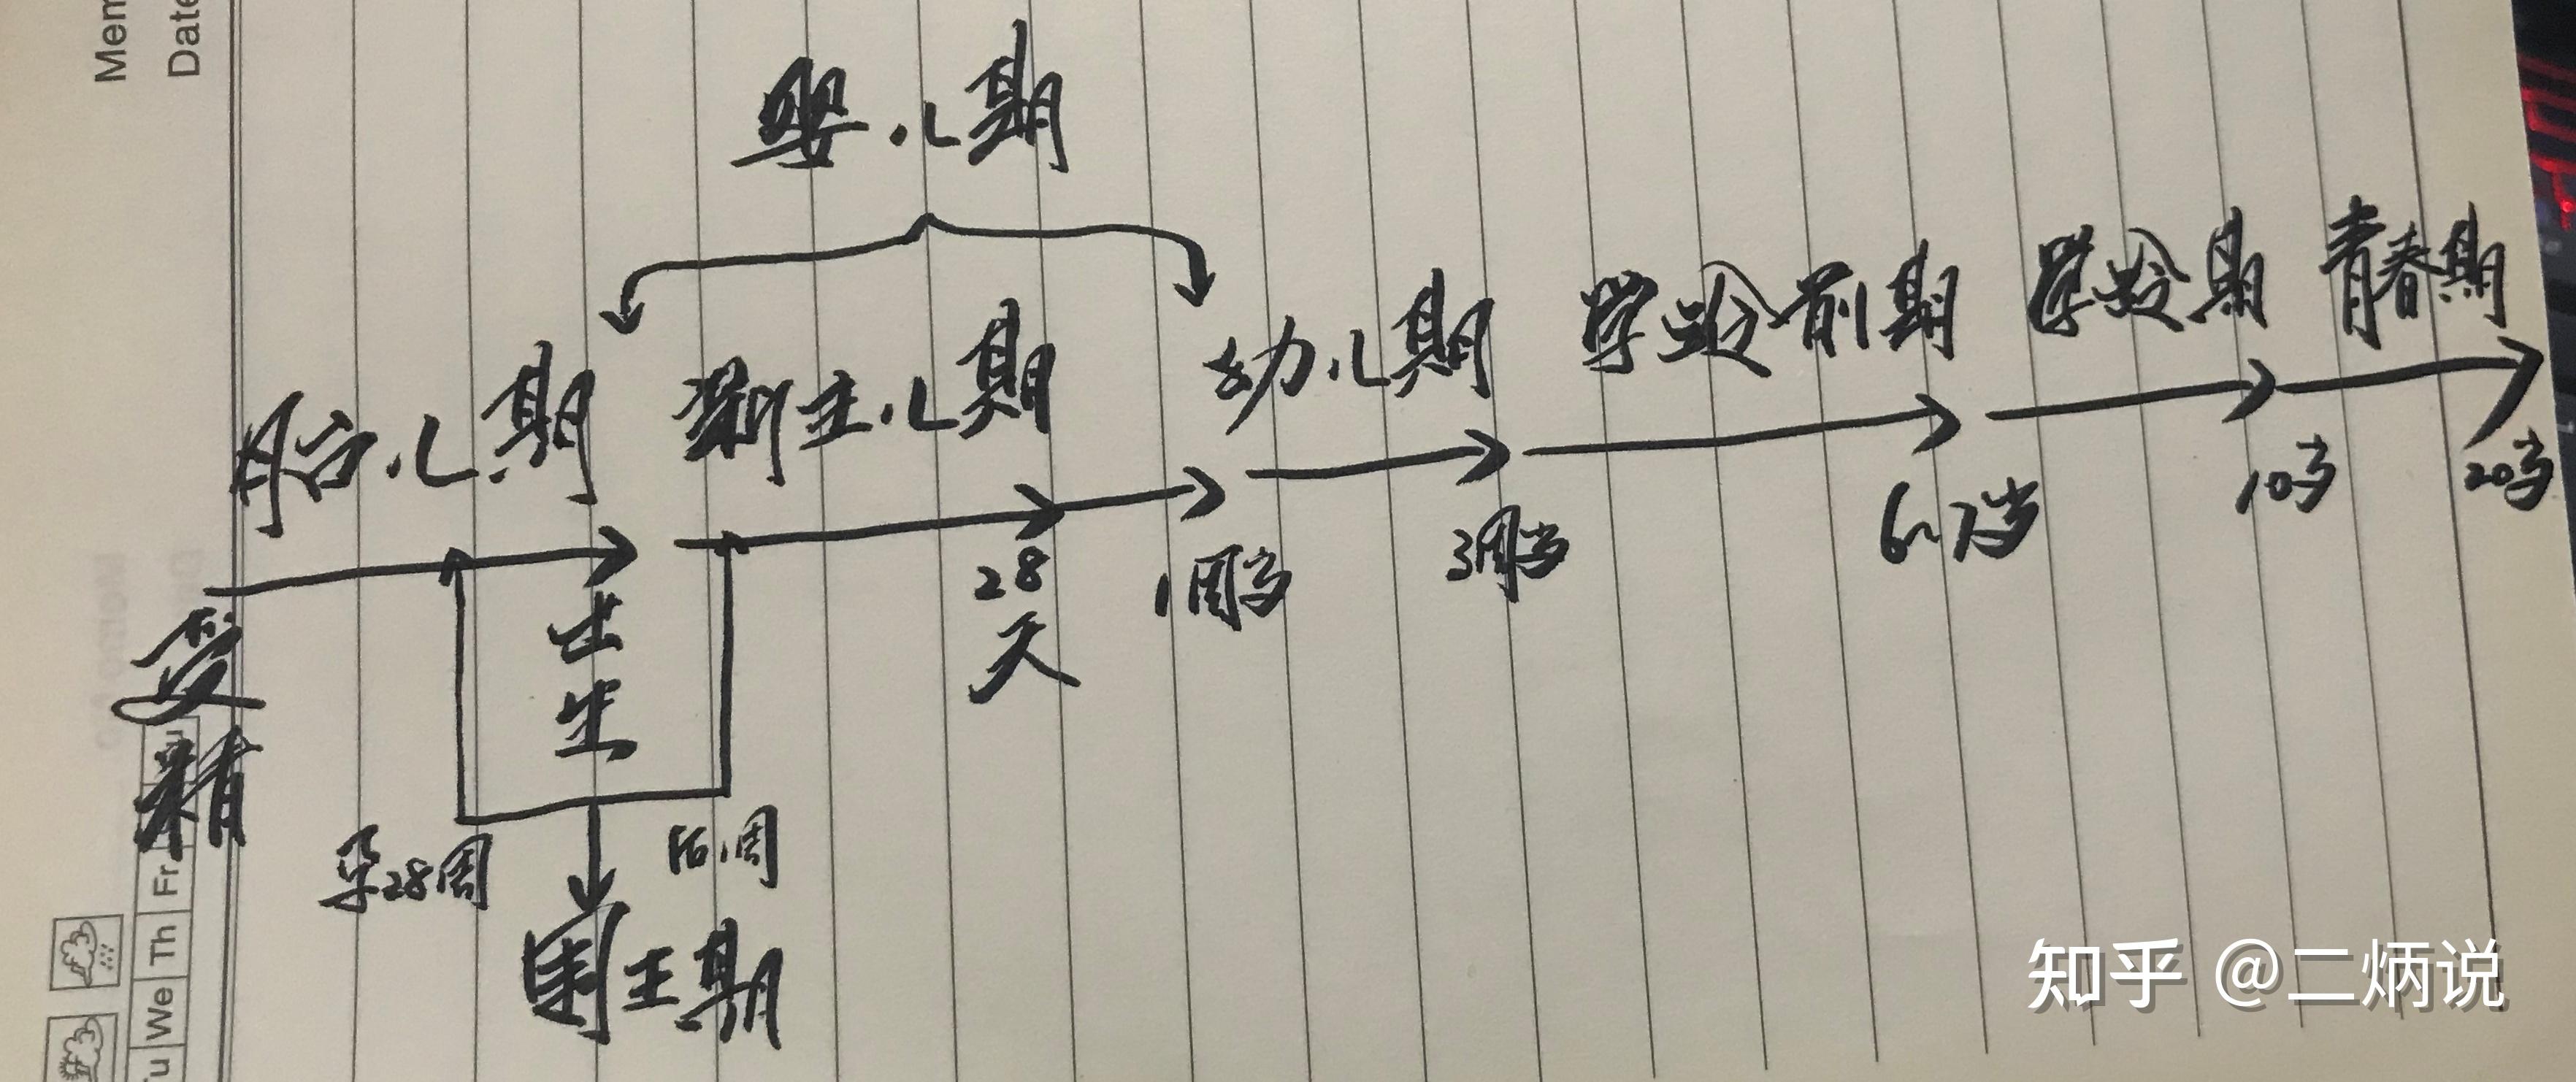 Mem
Date
婴儿期
胎儿期 新生儿期 幼儿期 学龄前期 学龄期 青春期
受精 出生 28天 1周岁 3周岁 6~7岁 10岁 20岁
孕28周 后1周
围生期
Fr
Th
We
Tu
知乎 @二炳说